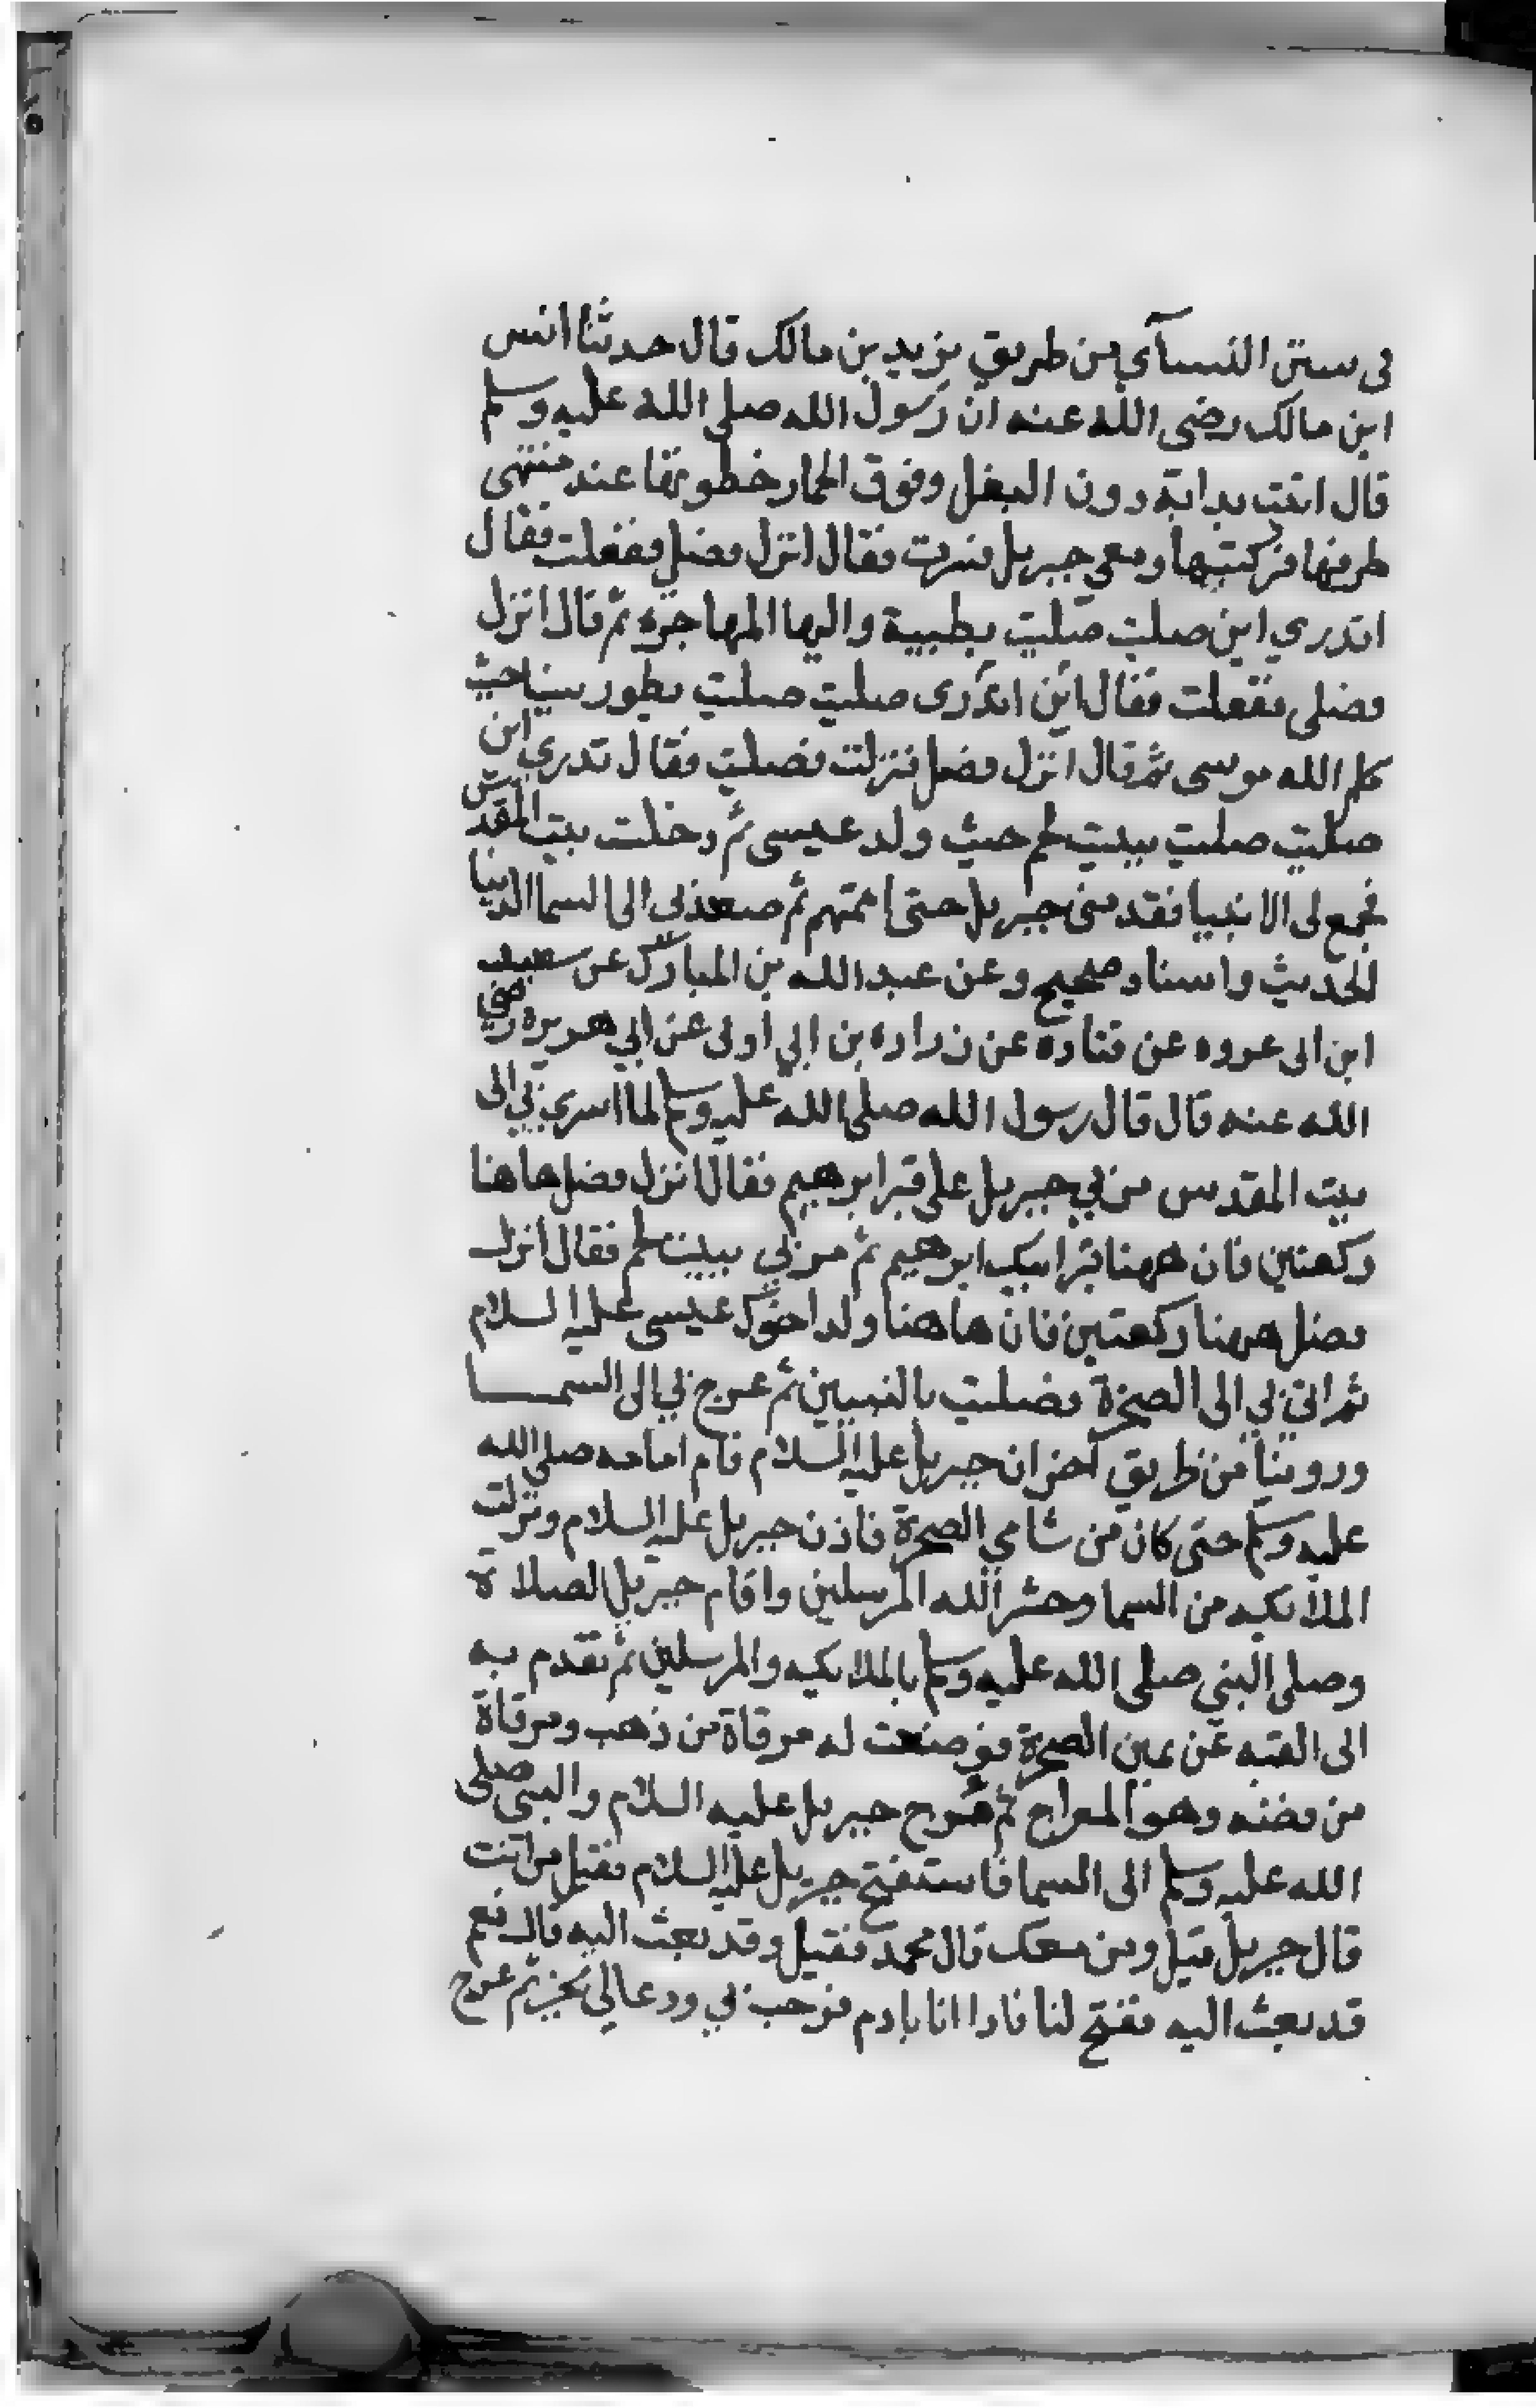 في سنن النسآي من طريق يزيد بن مالك قال حدثنا انس
ابن مالك رضي الله عنه ان رسول الله صلى الله عليه وسلم
قال اتيت بدابة دون البغل وفوق الحمار خطوتها عند منتهى
طرفها فركبتها ومعي جبريل فسرت فقال انزل فصل ففعلت فقال
اتدري اين صليت صليت بطيبة واليها المهاجره ثم قال انزل
فصلى ففعلت فقال اين اتدرى صليت صليت بطور سينا حيث
كلم الله موسى ثم قال انزل فصل فنزلت فصليت فقال تدري اين
صليت صليت ببيت لحم حيث ولد عيسى ثم دخلت بيت المقدس
فجمع لى الانبيا فقدمنى جبريل حتى اممتهم ثم صعد بي الى السما الدنيا
الحديث واسناد صحيح وعن عبد الله بن المبارك عن سعيد
ابن ابى عروه عن قتاده عن زراره بن ابي اوفى عن ابي هريره رضي
الله عنه قال قال رسول الله صلى الله عليه وسلم لما اسري بي الى
بيت المقدس مر بي جبريل على قبر ابرهيم فقال انزل فصل هاهنا
ركعتين فان ههنا قبر ابيك ابرهيم ثم مر بي ببيت لحم فقال انزل
فصل ههنا ركعتين فان هاهنا ولد اخوك عيسى عليه السلام
ثم اتى بي الى الصخرة فصليت بالنبيين ثم عرج بي الى السما
وروينا من طريق اخر ان جبريل عليه السلام قام امامه صلى الله
عليه وسلم حتى كان من شامي الصخرة فاذن جبريل عليه السلام ونزلت
الملائكيه من السما وحشر الله المرسلين واقام جبريل الصلاة
وصلى النبي صلى الله عليه وسلم بالملايكيه والمرسلين ثم تقدم به
الى القبه عن يمين الصخرة فوضعت له مرقاة من ذهب ومرقاة
من فضه وهو المعراج ثم عرج جبريل عليه السلام والنبى صلى
الله عليه وسلم الى السما فاستفتح جبريل عليه السلام فقيل من انت
قال جبريل قيل ومن معك قال محمد فقيل وقد بعث اليه قال نعم
قد بعث اليه ففتح لنا فاذا انا بادم فرحب بي ودعا لي بخير ثم عرج